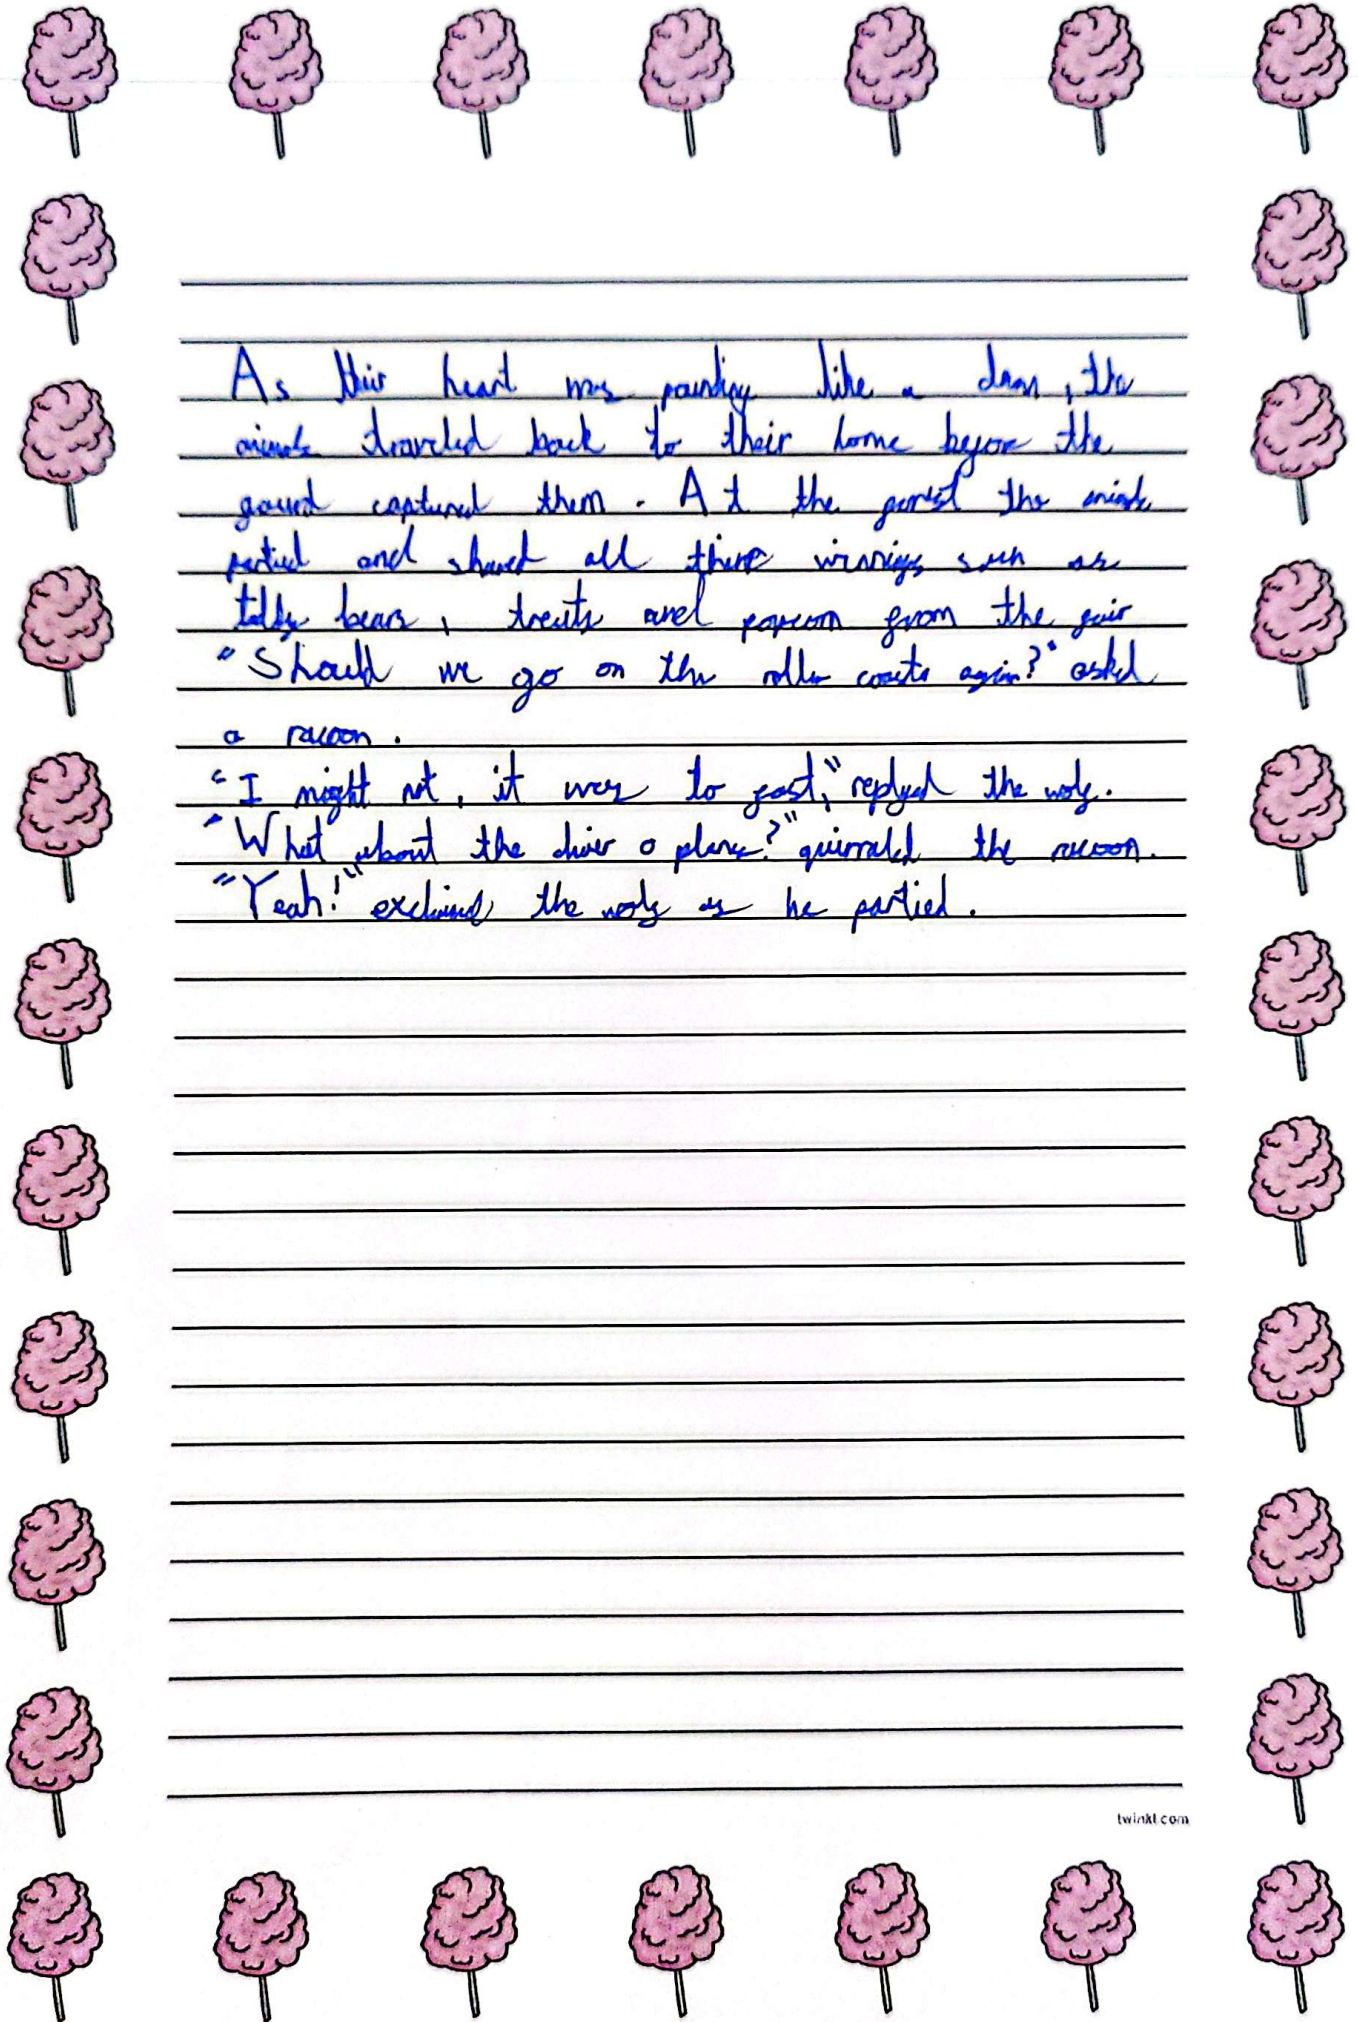 As thier heart was pounding like a drum, the
animals traveled back to their home befor the
gaurd captured them. At the forest the animals
partied and shared all there winnings such as
teddy bears, treats and popcorn from the fair
"Should we go on the roller coaster again?" asked
a racoon.
"I might not, it was to fast," replyed the wolf.
"What about the diver o plane?" the racoon.
"Yeah!" exclaimed the wolf as he partied.
twinkl.com